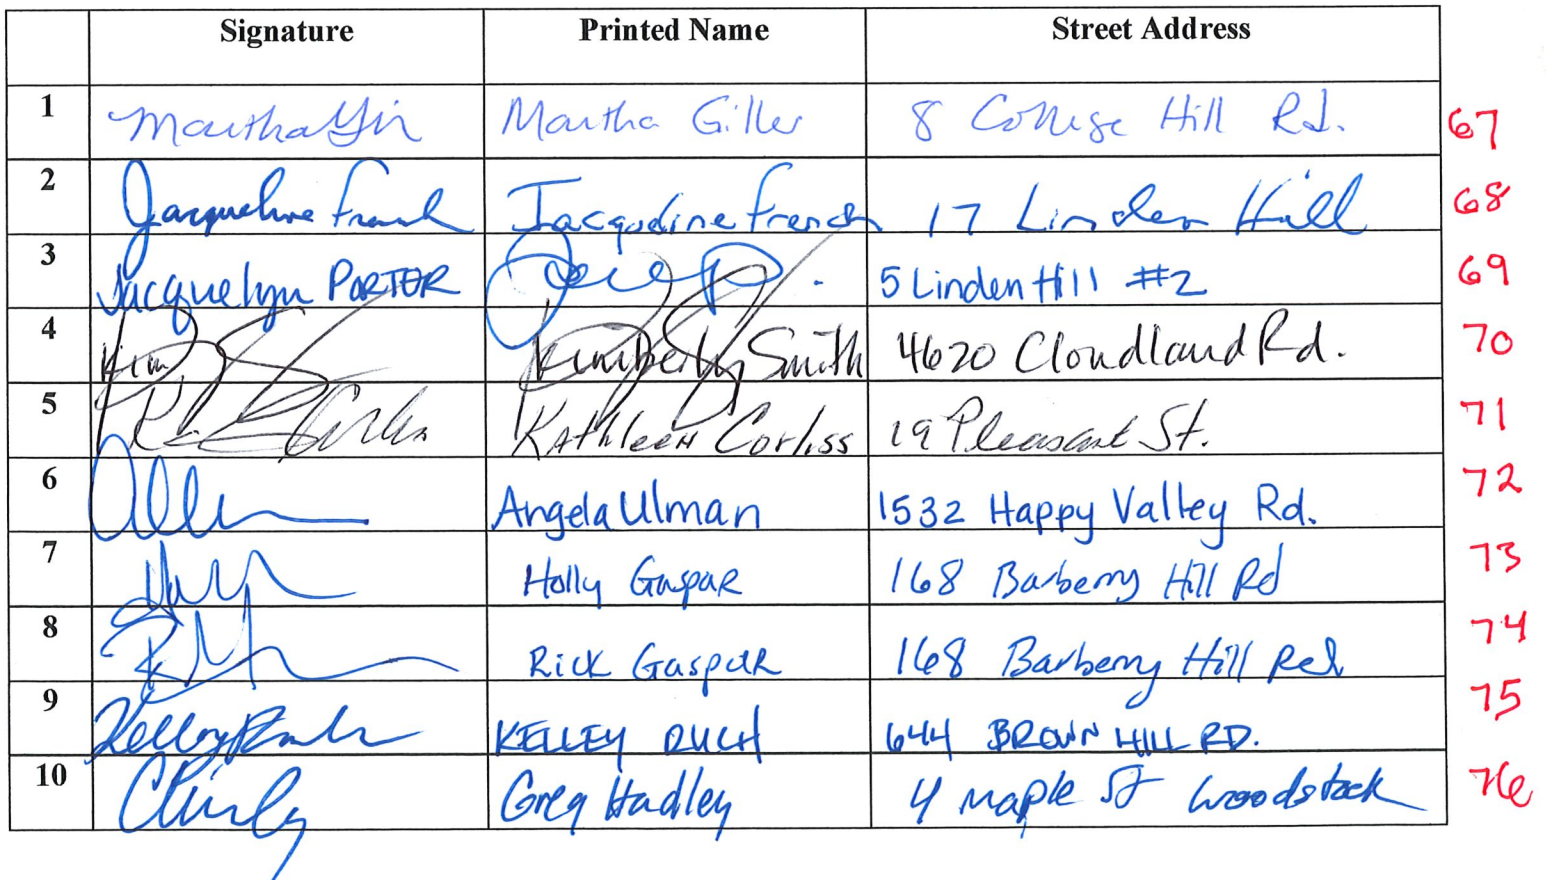 Signature Printed Name Street Address
1 Martha Giller 8 College Hill Rd. 67
2 Jacqueline French Jacqueline French 17 Linden Hill 68
3 Jacquelyn PORTER 5 Linden Hill #2 69
4 Kim Kimberly Smith 4620 Cloudland Rd. 70
5 Kathleen Corliss 19 Pleasant St. 71
6 Angela Ulman 1532 Happy Valley Rd. 72
7 Holly Gaspar 168 Barberry Hill Rd 73
8 Rick Gaspar 168 Barberry Hill Rd 74
9 KELLEY RUCH 644 BROWN HILL RD. 75
10 Greg Hadley 4 Maple St Woodstock 76